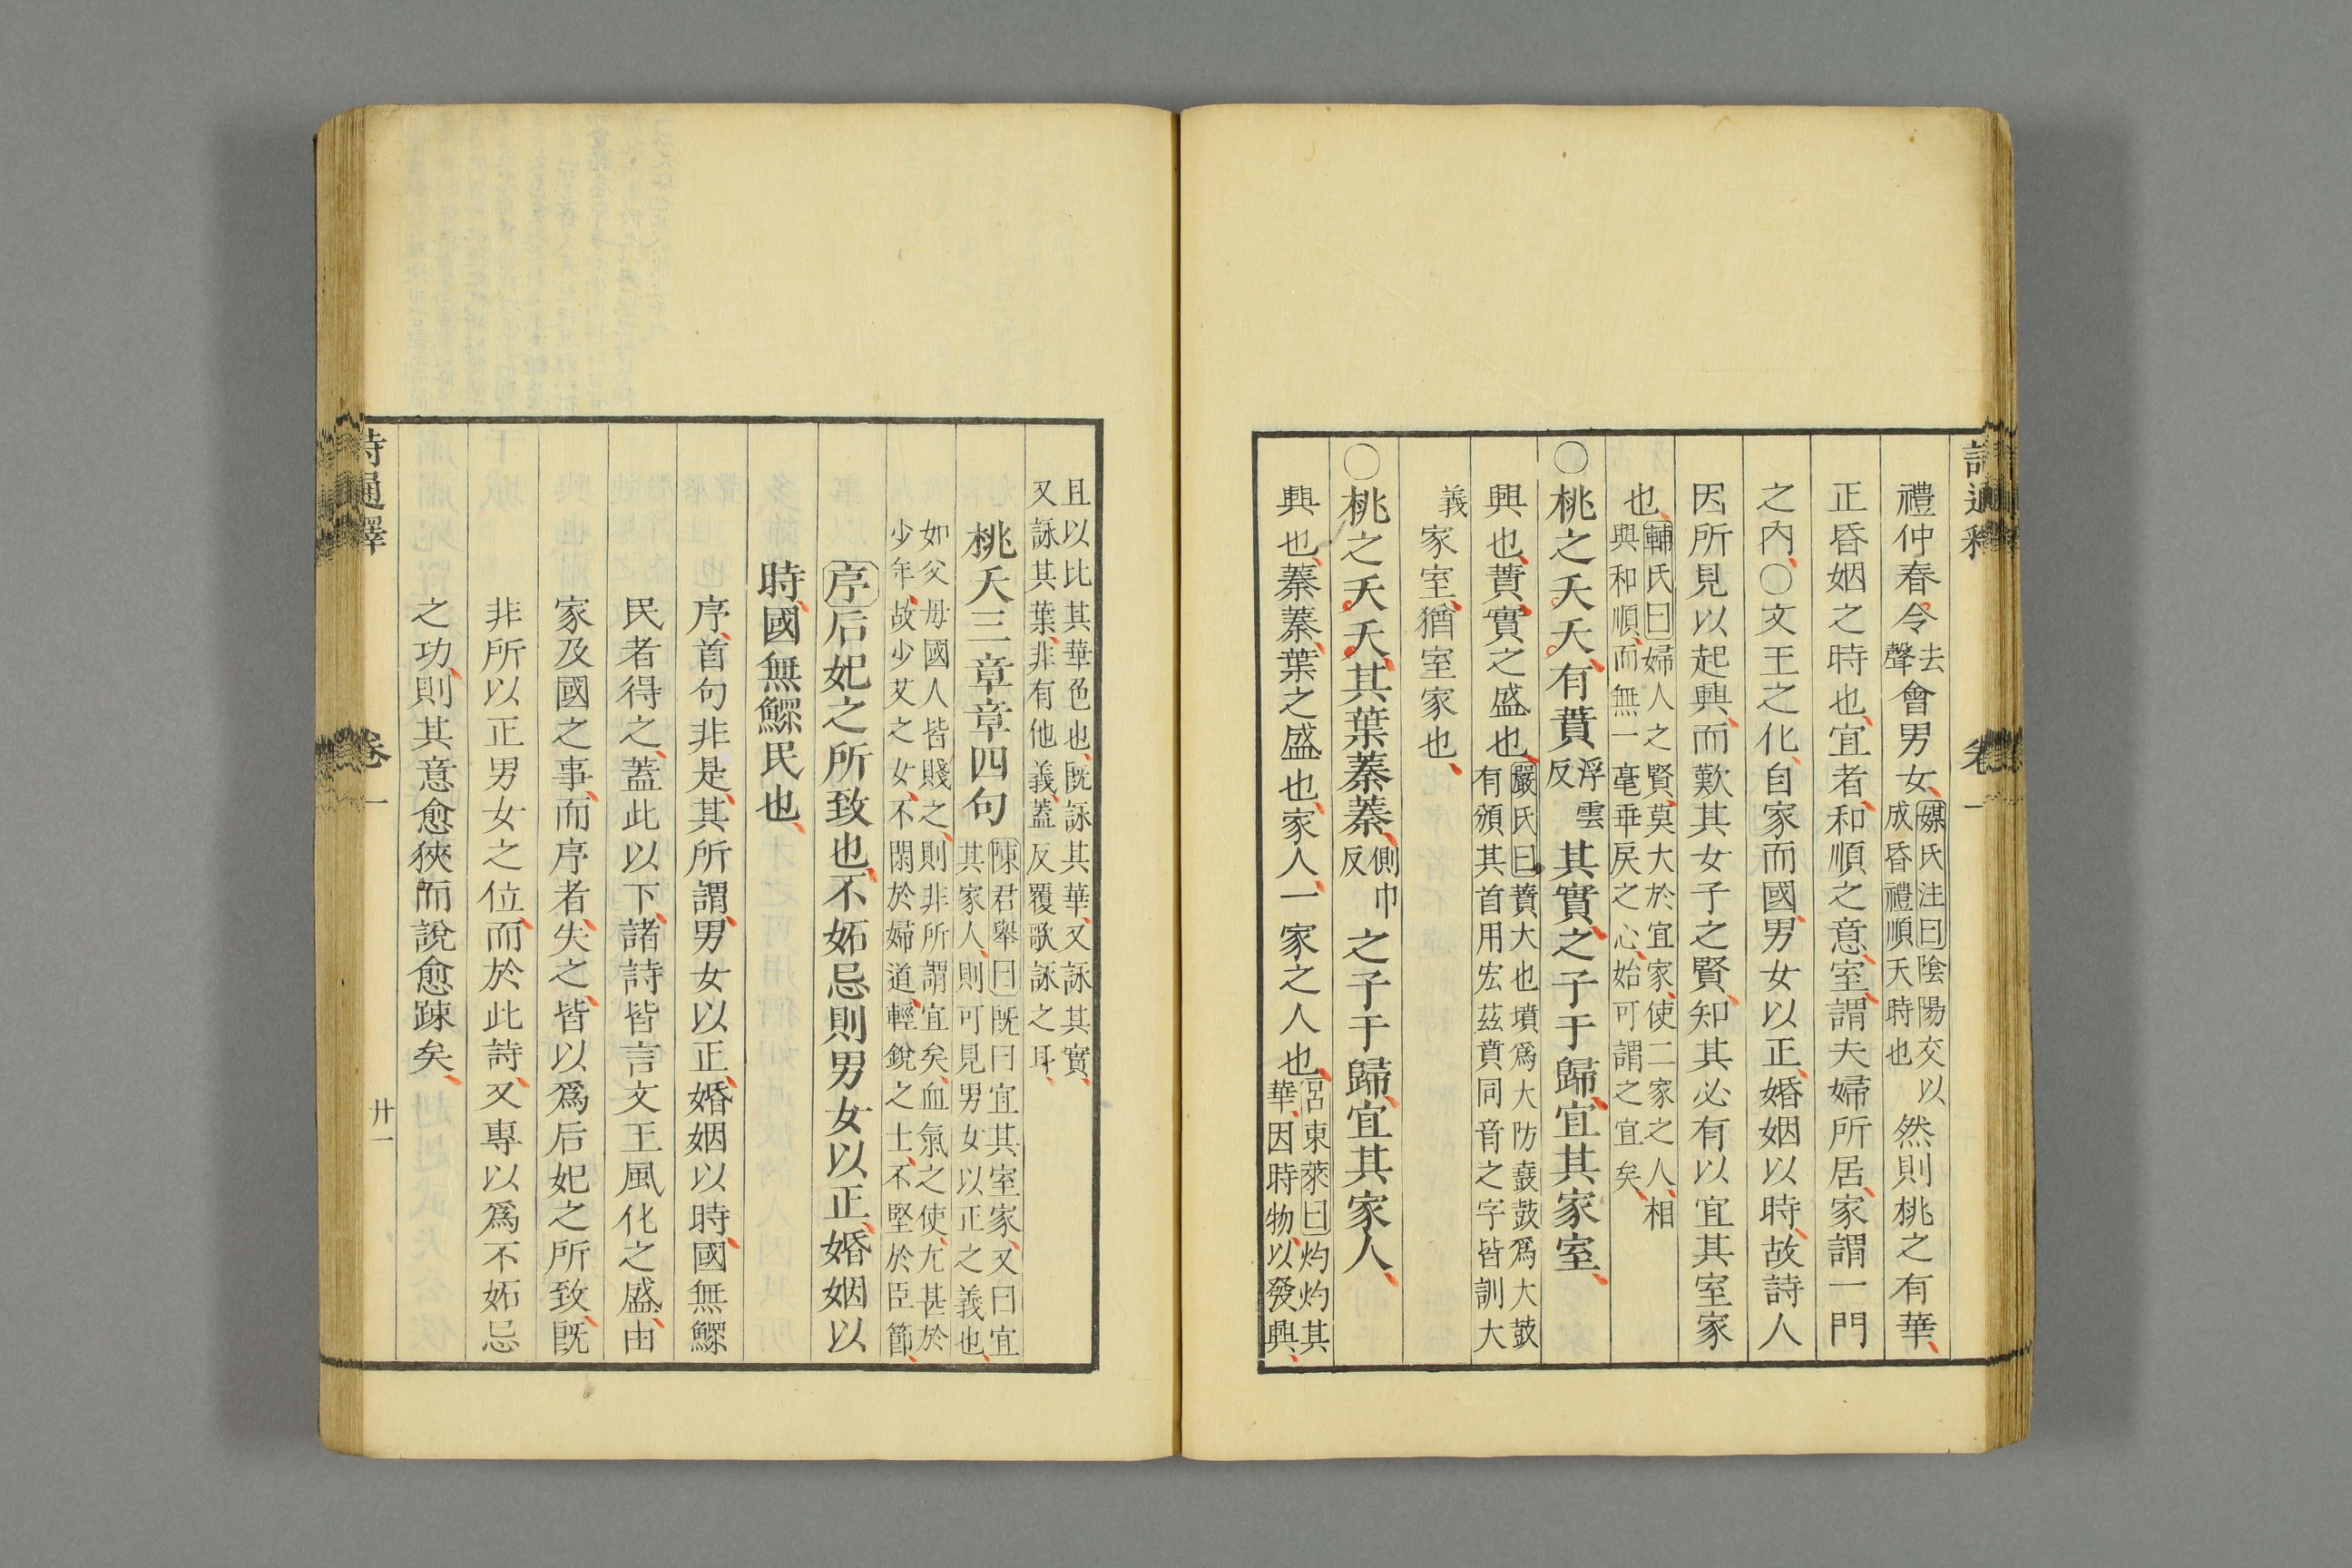 禮仲春令去聲會男女媒氏注曰陰陽交以成昏禮順天時也然則桃之有華
正昏姻之時也宜者和順之意室謂夫婦所居家謂一門
之內○文王之化自家而國男女以正婚姻以時故詩人
因所見以起興而歎其女子之賢知其必有以宜其室家
也輔氏曰婦人之賢莫大於宜家使二家之人相與和順而無一毫乖戾之心始可謂之宜矣
○桃之夭夭有蕡浮雲反其實之子于歸宜其家室
興也蕡實之盛也嚴氏曰蕡大也墳爲大防鼖鼓爲大鼓有頒其首用宏茲賁同音之字皆訓大義
家室猶室家也
○桃之夭夭其葉蓁蓁側巾反之子于歸宜其家人
興也蓁蓁葉之盛也家人一家之人也呂東萊曰灼灼其華因時物以發興
且以比其華色也既詠其華又詠其實又詠其葉非有他義蓋反覆歌詠之耳
桃夭三章章四句陳君舉曰既曰宜其室家又曰宜其家人則可見男女以正之義也
如父母國人皆賤之則非所謂宜矣血氣之使尤甚於少年故少艾之女不閑於婦道輕銳之士不堅於臣節
序后妃之所致也不妬忌則男女以正婚姻以
時國無鰥民也
序首句非是其所謂男女以正婚姻以時國無鰥
民者得之蓋此以下諸詩皆言文王風化之盛由
家及國之事而序者失之皆以爲后妃之所致既
非所以正男女之位而於此詩又專以爲不妬忌
之功則其意愈狹而說愈踈矣
卷一
廿一